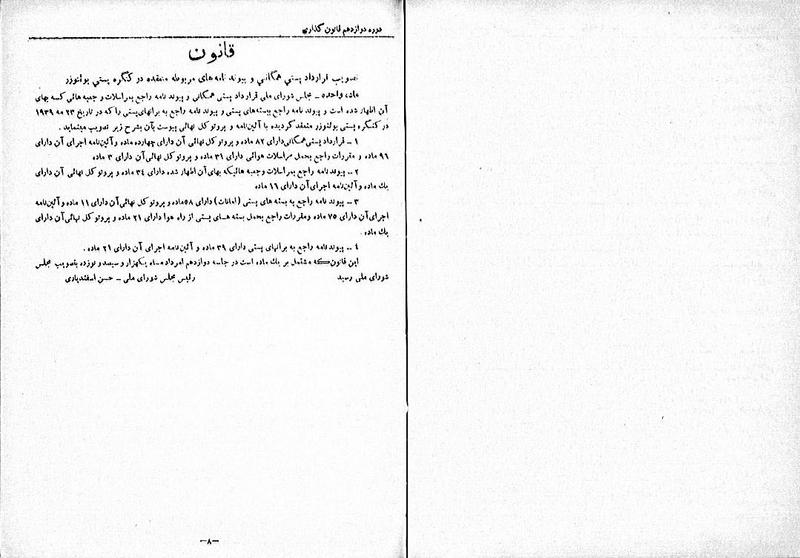 دوره دوازدهم قانون گذاری
قانون
تصویب قرارداد پستی همگانی و پیوند نامه های مربوطه منعقده در کنگره پستی بوئنوزر
ماده واحده ـ مجلس شورای ملی قرارداد پستی همگانی و پیوند نامه راجع بمراسلات و جعبه هائی که بهای
آن اظهار شده است و پیوند نامه راجع ببسته‌های پستی و پیوند نامه راجع به براتهای پستی را که در تاریخ ۲۳ مه ۱۹۳۹
در کنگره پستی بوئنوزر منعقد گردیده با آئین‌نامه و پروتوکل نهائی پیوست بآن بشرح زیر تصویب مینماید .
۱ ـ قرارداد پستی همگانی دارای ۸۲ ماده و پروتوکل نهائی آن دارای چهارده ماده و آئین‌نامه اجرای آن دارای
۹۶ ماده و مقررات راجع بحمل مراسلات هوائی دارای ۳۱ ماده و پروتوکل نهائی آن دارای ۳ ماده
۲ ـ پیوند نامه راجع بمراسلات وجعبه هائیکه بهای آن اظهار شده دارای ۳۴ ماده و پروتوکل نهائی آن دارای
یك ماده و آئین‌نامه اجرای آن دارای ۱۶ ماده
۳ ـ پیوند نامه راجع به بسته های پستی (امانات) دارای ۵۸ ماده و پروتوکل نهائی آن دارای ۱۱ ماده و آئین‌نامه
اجرای آن دارای ۷۵ ماده ومقررات راجع بحمل بسته های پستی از راه هوا دارای ۲۱ ماده و پروتوکل نهائی آن دارای
یك ماده .
۴ ـ پیوند نامه راجع به براتهای پستی دارای ۳۹ ماده و آئین‌نامه اجرای آن دارای ۲۱ ماده .
این قانون که مشتمل بر یك ماده است در جلسه دوازدهم امرداد ماه یکهزار و سیصد و نوزده بتصویب مجلس
شورای ملی رسید رئیس مجلس شورای ملی ـ حسن اسفندیاری
ـ۸ـ